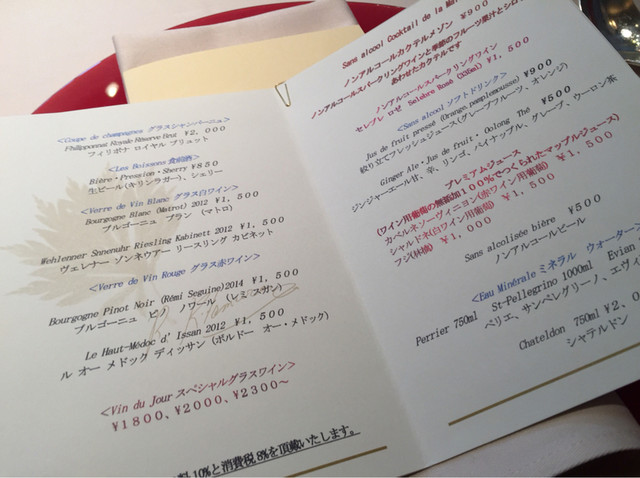 <Coupe de champagnes グラスシャンパーニュ>
Philipponnat Royale Réserve Brut ¥2,000
フィリポナ ロイヤル ブリュット
<Les Boissons 食前酒>
Bière・Pression・Sherry ¥850
生ビール(キリンラガー)、シェリー
<Verre de Vin Blanc グラス白ワイン>
Bourgogne Blanc (Matrot) 2012 ¥1,500
ブルゴーニュ ブラン (マトロ)
Wehlenner Snnenuhr Riesling Kabinett 2012 ¥1,500
ヴェレナー ゾンネウアー リースリング カビネット
<Verre de Vin Rouge グラス赤ワイン>
Bourgogne Pinot Noir (Rémi Seguine)2014 ¥1,500
ブルゴーニュ ピノ ノワール (レミ スガン)
Le Haut-Médoc d'Issan 2012 ¥1,500
ル オー メドック ディッサン (ボルドー オー・メドック)
<Vin du Jour スペシャルグラスワイン>
¥1800、¥2000、¥2300～
10%と消費税8%を頂戴いたします。
Sans alcool Cocktail de la
ノンアルコールカクテルメゾン ¥900
ノンアルコールスパークリングワインと季節のフルーツ果汁とシロ
あわせたカクテルです
ノンアルコールスパークリングワイン
セレブレ ロゼ Selebre Rosé (335ml) ¥1,500
<Sans alcool ソフトドリンク>
Jus de fruit pressé (Orange,pamplemousse) ¥900
絞り立てフレッシュジュース(グレープフルーツ、オレンジ)
Ginger Ale・Jus de fruit・Oolong Thé ¥500
ジンジャーエール甘、辛、リンゴ、パイナップル、グレープ、ウーロン茶
プレミアムジュース
(ワイン用葡萄の無添加100%でつくられたマップルジュース)
カベルネソーヴィニヨン(赤ワイン用葡萄) ¥1,500
シャルドネ(白ワイン用葡萄) ¥1,500
フジ(林檎) ¥1,000
Sans alcolisée bière ¥500
ノンアルコールビール
<Eau Minérale ミネラル ウォーター>
Perrier 750ml St-Pellegrino 1000ml Evian
ペリエ、サンペレグリーノ、エヴィ
Chateldon 750ml ¥2,0
シャテルドン